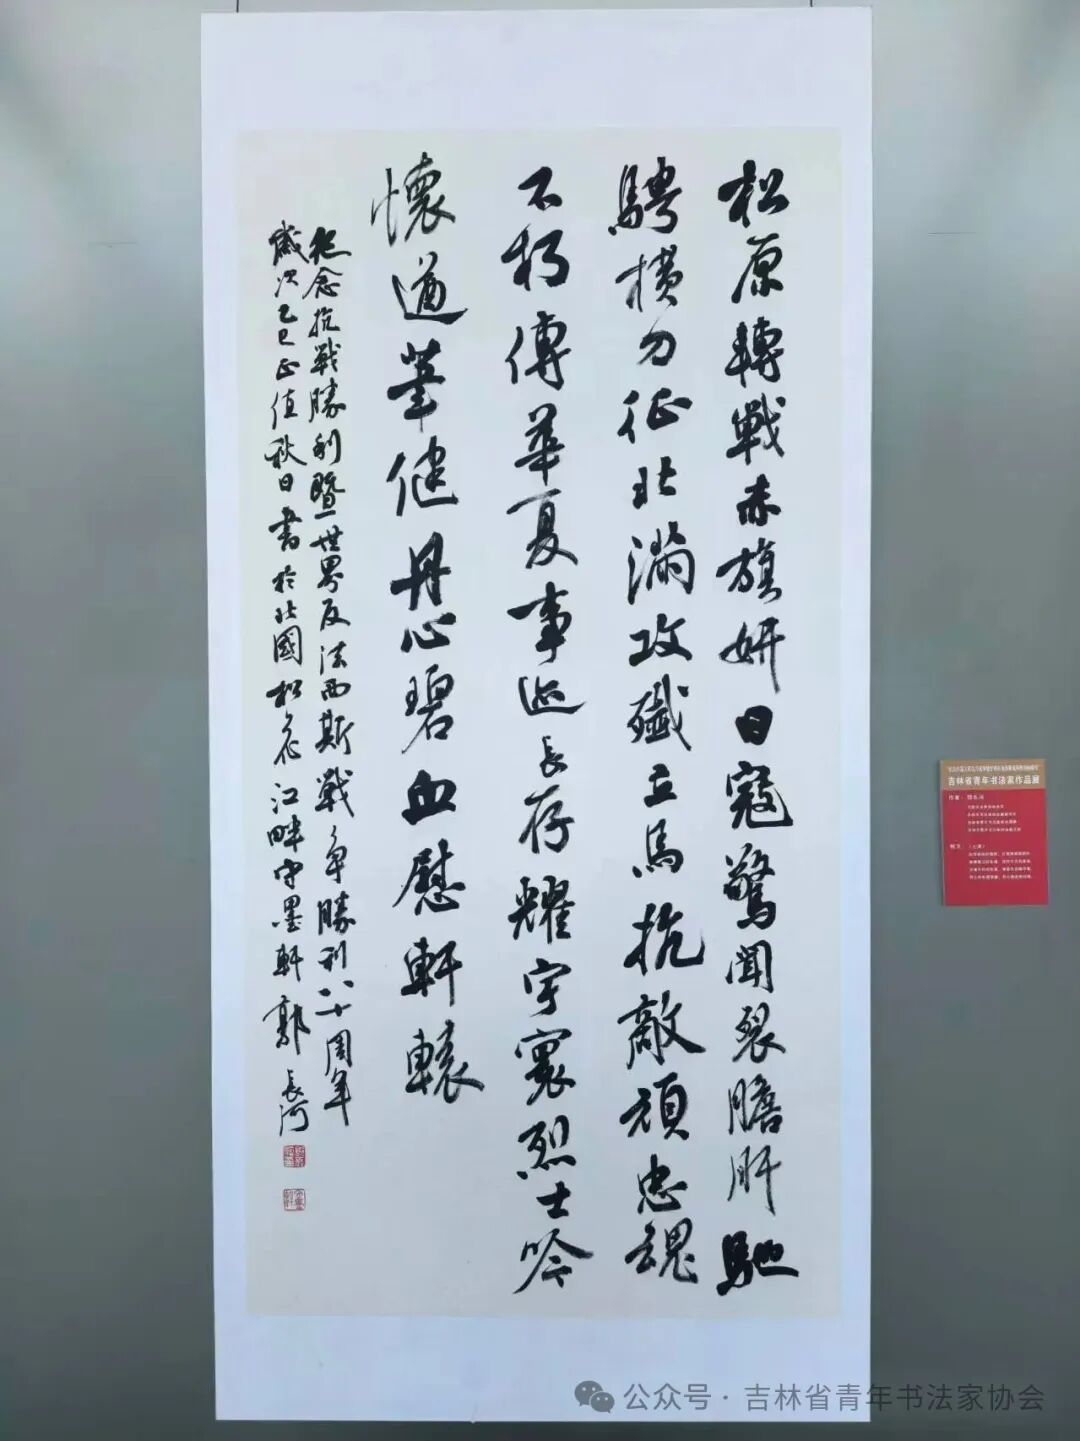 松原轉戰赤旗妍日寇驚聞裂膽肝馳
騁横刀征北滿攻殲立馬抗敵頑忠魂
不朽傳華夏事迹長存耀宇寰烈士吟
懷遒筆健丹心碧血慰軒轅
紀念抗戰勝利暨世界反法西斯戰争勝利八十周年
歲次乙巳正值秋日書於北國松花江畔守墨軒郭長河
吉林省青年书法家作品展
公众号·吉林省青年书法家协会